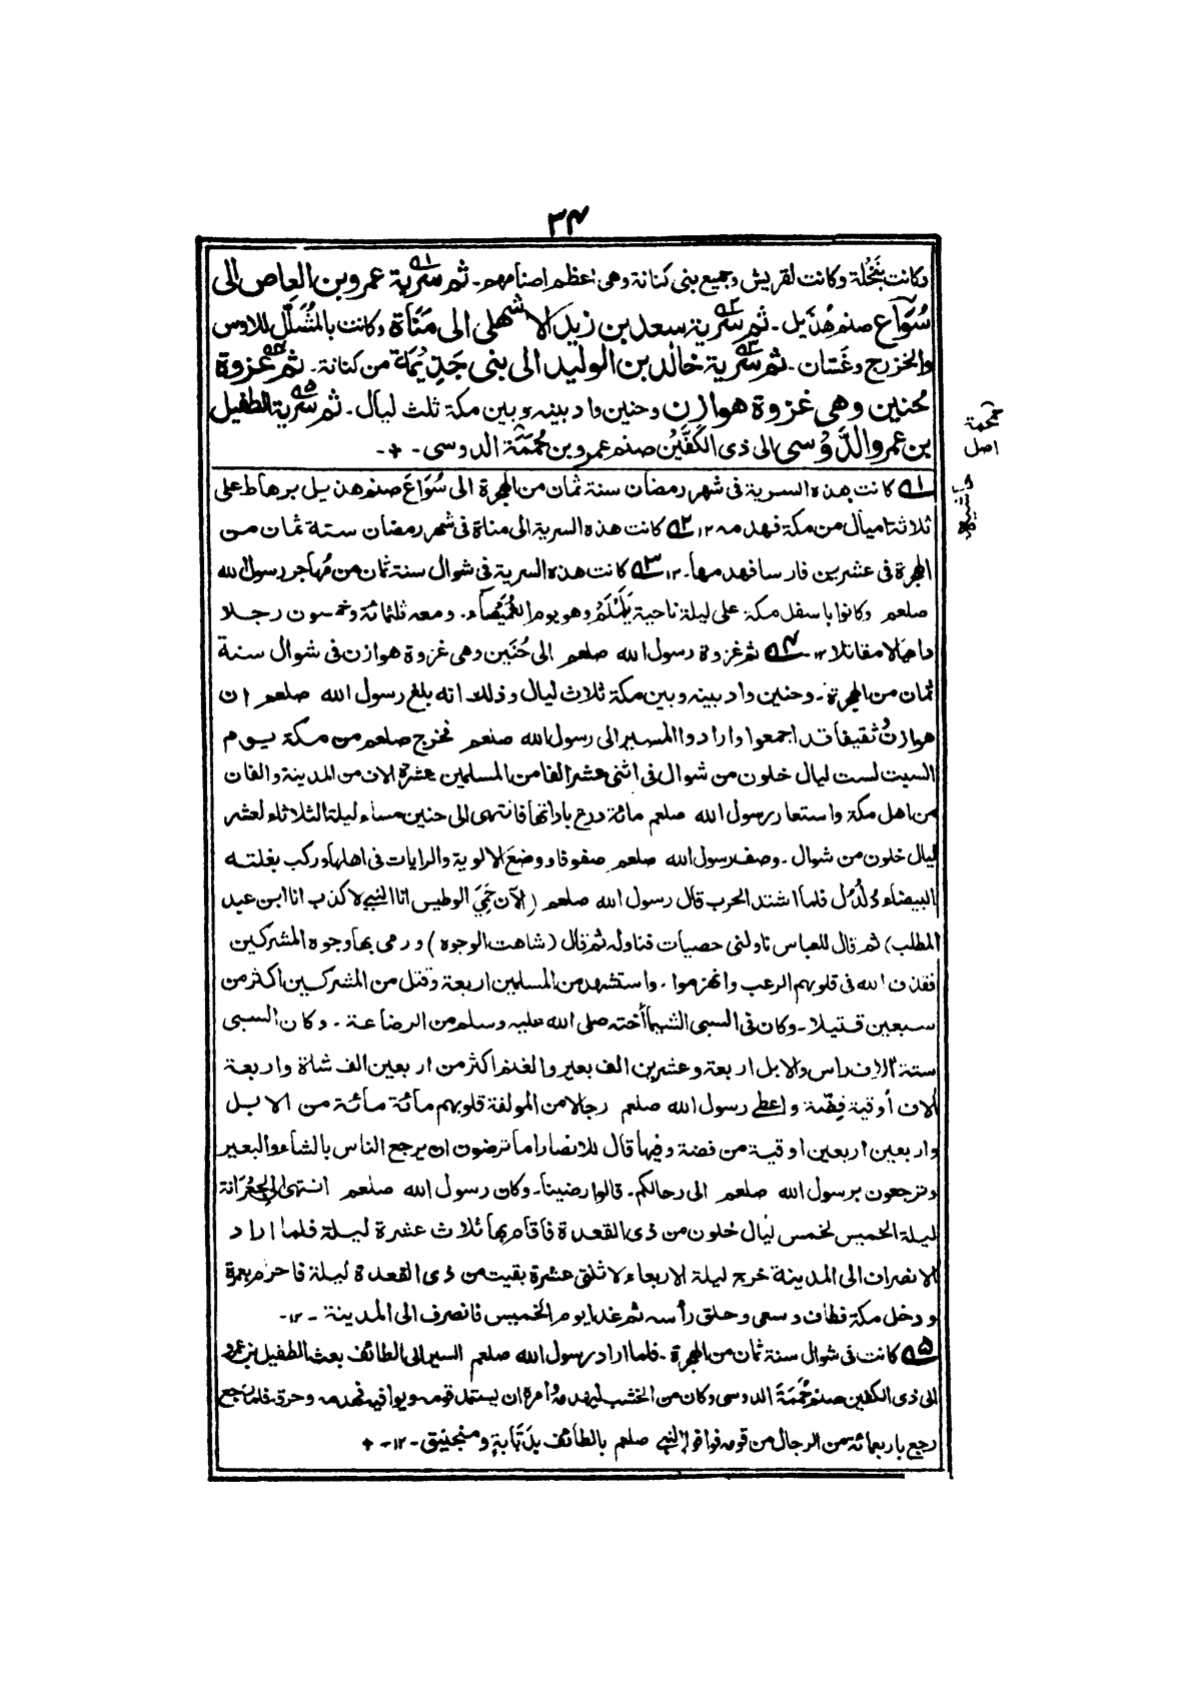 ٣٤
وكانت بنَخْلة وكانت لقريش وجميع بنى كنانة وهى اعظم اصنامهم۔ ثم سرية عمرو بن العاص الى
سُوَاع صنم هُذَيل۔ ثم سرية سعد بن زيد الاشهلى الى مَنَاة وكانت بالمُشَلَّل للاوس
والخزرج وغَسّان۔ ثم سرية خالد بن الوليد الى بنى جَذِيْمَة من كنانة۔ ثم غزوة
حُنين وهى غزوة هوازن وحنين واد بينه وبين مكة ثلث ليال۔ ثم سرية الطفيل
بن عمرو الدَّوْسى الى ذى الكَفَّيْن صنم عمرو بن حُمَمَة الدوسى۔
صحمة
اصل
حاشيه
١ كانت هذه السرية فى شهر رمضان سنة ثمان من الهجرة الى سُوَاعَ صنم هذيل برهاط على
ثلاثة اميال من مكة فهدمه ١٢ ٢ كانت هذه السرية الى مناة فى شهر رمضان ستة ثمان من
الهجرة فى عشرين فارسا فهدمها۔ ١٢ ٣ كانت هذه السرية فى شوال سنة ثمان من مُهاجر رسول الله
صلعم وكانوا باسفل مكة على ليلة ناحية يَلَمْلَمْ وهو يوم الغُمَيْصَاء۔ ومعه ثلثمائة وخمسون رجلا
داعيًا لا مقاتلا ١٢۔ ٤ ثم غزوة رسول الله صلعم الى حُنَين وهى غزوة هوازن فى شوال سنة
ثمان من الهجرة۔ وحنين واد بينه وبين مكة ثلاث ليال وذلك انه بلغ رسول الله صلعم ان
هوازن وثقيفا قد اجمعوا وارادوا المسير الى رسول الله صلعم فخرج صلعم من مكة يوم
السبت لست ليال خلون من شوال فى اثنى عشر الفا من المسلمين عشرة الاف من المدينة والفان
من اهل مكة واستعار رسول الله صلعم مائة درع باداتها فانتهى الى حنين مساء ليلة الثلاثاء لعشر
ليال خلون من شوال۔ وصف رسول الله صلعم صفوفا ووضع الالوية والرايات فى اهلها وركب بغلته
البيضاء دُلْدُل فلما اشتد الحرب قال رسول الله صلعم (الآن حَمِىَ الوطيس انا النبى لا كذب انا ابن عبد
المطلب) ثم قال للعباس ناولنى حصيات فناوله ثم قال (شاهت الوجوه) ورمى بها وجوه المشركين
فقذف الله فى قلوبهم الرعب وانهزموا۔ واستشهد من المسلمين اربعة وقتل من المشركين اكثر من
سبعين قتيلا۔ وكان فى السبى الشيما أخته صلى الله عليه وسلم من الرضاعة۔ وكان السبى
ستة آلاف راس والابل اربعة وعشرين الف بعير والغنم اكثر من اربعين الف شاة واربعة
آلاف أوقية فِضّة واعطى رسول الله صلعم رجالا من المولفة قلوبهم مائة مائة من الابل
واربعين اربعين اوقية من فضة وفيها قال للانصار اما ترضون ان يرجع الناس بالشاء والبعير
وترجعون برسول الله صلعم الى رحالكم۔ قالوا رضينا۔ وكان رسول الله صلعم انتهى الى الجِعْرَانة
ليلة الخميس لخمس ليال خلون من ذى القعدة فاقام بها ثلاث عشرة ليلة فلما اراد
الانصراف الى المدينة خرج ليلة الاربعاء لاثنتى عشرة بقيت من ذى القعدة ليلة فاحرم بعمرة
ودخل مكة فطاف وسعى وحلق رأسه ثم غدا يوم الخميس فانصرف الى المدينة۔ ١٢۔
٥ كانت فى شوال سنة ثمان من الهجرة۔ فلما اراد رسول الله صلعم السير الى الطائف بعث الطفيل بن عمرو
الى ذى الكفين صنم حُمَمَةَ الدوسى وكان من الخشب ليهدمه وامره ان يستمد قومه ويوافيه فهدمه وحرق فلما رجع
رجع باربعمائة من الرجال من قومه فوافوا النبى صلعم بالطائف بدَبّابة ومنجنيق۔ ١٢۔